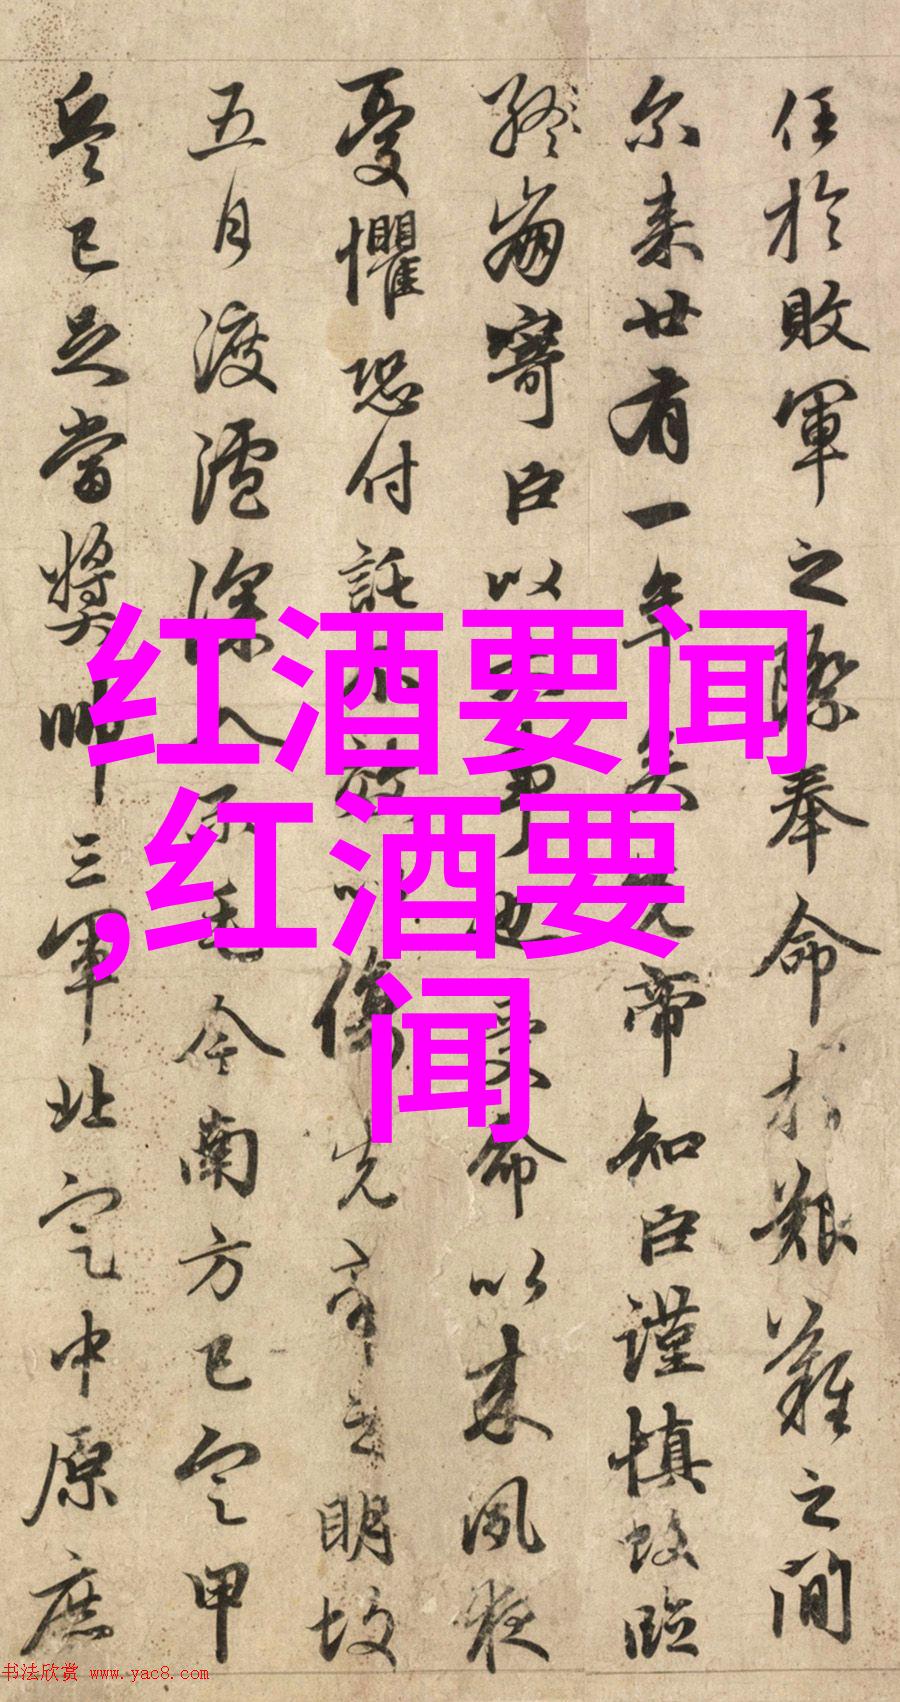 任於敗軍之際奉命於艱難之間
尔来廿有一年矣先帝知臣謹慎故臨
終崩寄臣以大事也受命以来夙夜
憂懼恐付託不效以傷先帝之明故
五月渡瀘深入不毛今南方已定甲
兵已足當獎帥三軍北定中原庶
红酒要闻
,红酒要
闻
书法欣赏 www.yac8.com